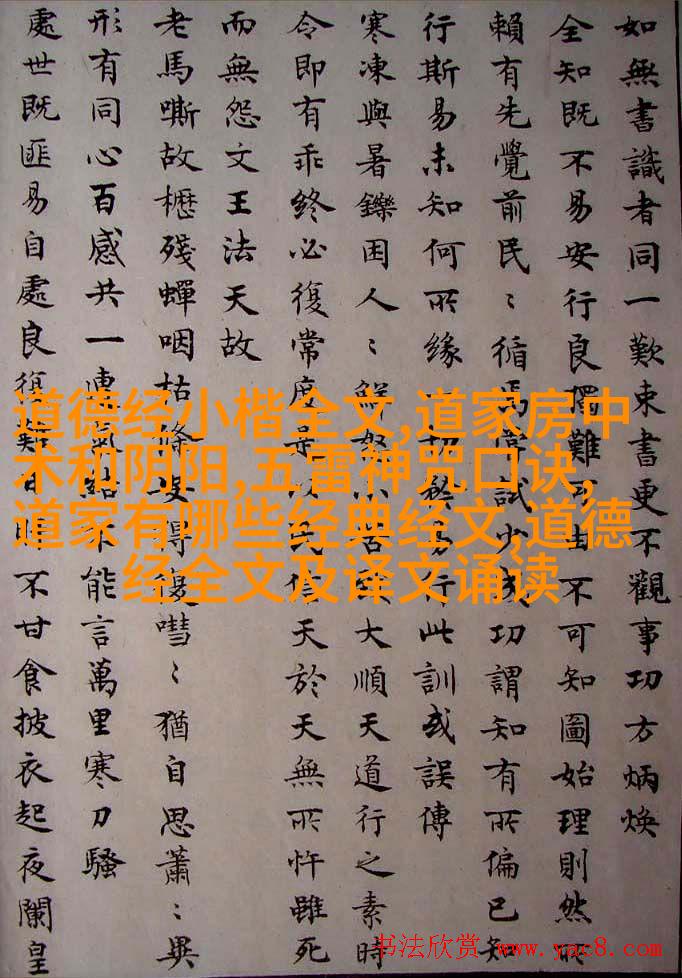 如無書識者同一歎束書更不觀事功方炳煥
全知既不易安行良獨難可由不可知圖始理則然所
賴有先覺前民〻循焉嘗試少成功謂知有所偏已知
行斯易未知何所緣一切於易行此訓或誤傳
寒凍與暑鑠困人〻鮮怒小害大順天道行之素時
令即有乖終必復常度是以民信天於天無所忤雖死
而無怨文王法天故
老馬嘶故櫪殘蟬咽枯條安得復嘒〻猶自思蕭〻異
形有同心百感共一連氣結不能言萬里寒刀騷
處世既匪易自處良復難日不甘食披衣起夜闌皇
道德经小楷全文,道家房中
术和阴阳,五雷神咒口诀,
道家有哪些经典经文,道德
经全文及译文诵读
书法欣赏 www.yac8.com